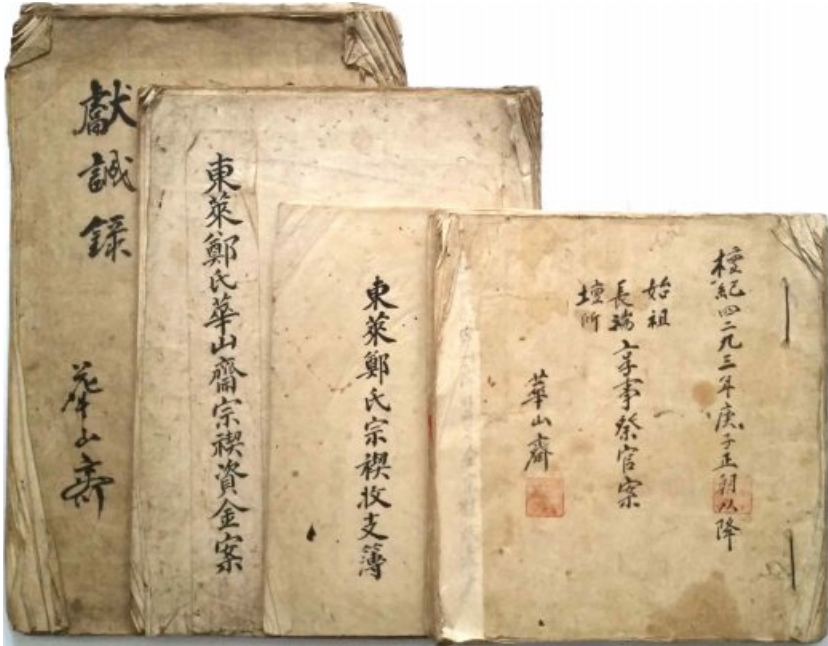 獻誠錄
華山齋
東萊鄭氏華山齋宗禊資金案
東萊鄭氏宗禊收支簿
檀紀四二九三年庚子正朝以降
始祖
長端
壇所
享事祭官案
華山齋